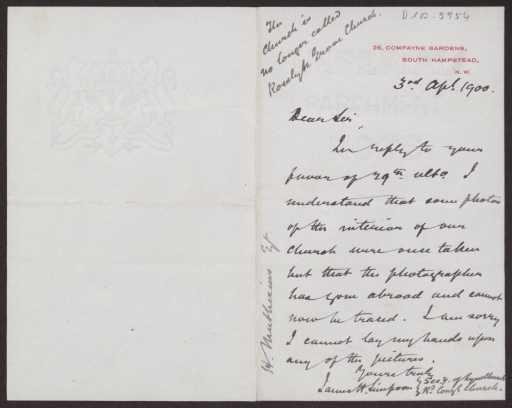 The
Church is
no longer called
Rosslyn Grove Church.
D 102. 3954
26, COMPAYNE GARDENS,
SOUTH HAMPSTEAD,
N.W.
3rd Apl. 1900.
Dear Sir,
In reply to your
favor of 29th ulto. I
understand that some photos
of the interior of our
Church were once taken
but that the photographer
has gone abroad and cannot
now be traced. I am sorry
I cannot lay my hands upon
any of the pictures.
Yours truly
James W. Simpson
Secy. of
Congl. Church.
W. Mathews Esq